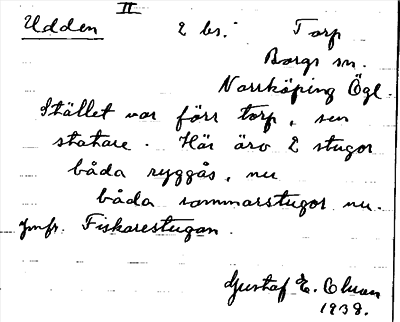 II
Udden 2 bs. Torp
Borgs sn.
Norrköping Ögl.
Stället var förr torp, sen
statare. Här äro 2 stugor
båda ryggås, nu
båda sommarstugor nu.
Jmfr. Fiskarestugan.
Gustaf E. Olsson
1938.